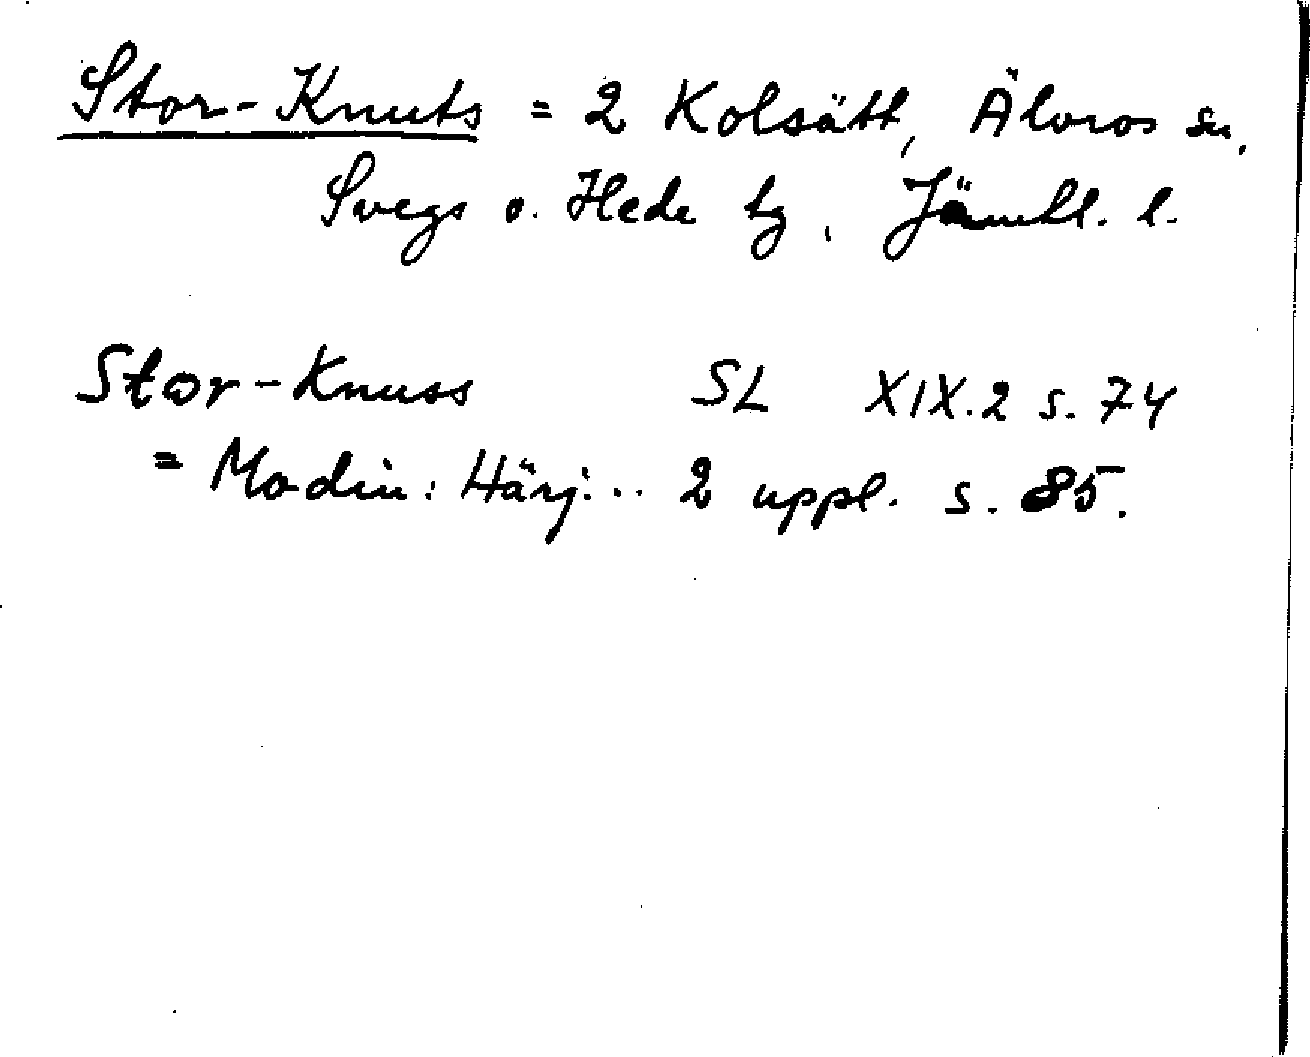 Stor-Knuts = 2 Kolsätt, Älvros sn,
Svegs o. Hede tg, Jämtl. l.
Stor-Knuss SL XIX.2 s. 74
= Modin: Härj... 2 uppl. s. 85.